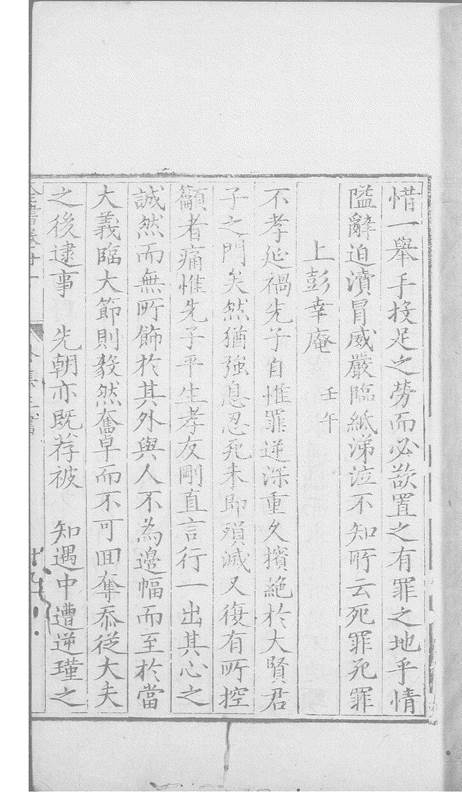 惜一舉手投足之勞而必欲置之有罪之地乎情
隘辭迫瀆冒威嚴臨紙涕泣不知所云死罪死罪
上彭幸庵 壬午
不孝延禍先子自惟罪逆深重久擯絶於大賢君
子之門矣然猶強息忍死未即殞滅又復有所控
籲者痛惟先子平生孝友剛直言行一出其心之
誠然而無所飾於其外與人不為邊幅而至於當
大義臨大節則毅然奮卓而不可回奪忝從大夫
之後逮事 先朝亦既荐被 知遇中遭逆瑾之